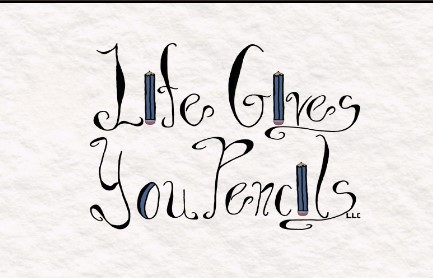 Life Gives
You Pencils LLC